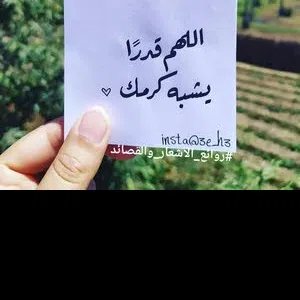 اللهم قدرًا
يشبه كرمك ♡
insta@3e_h3
#روائع_الأشعار_والقصائد